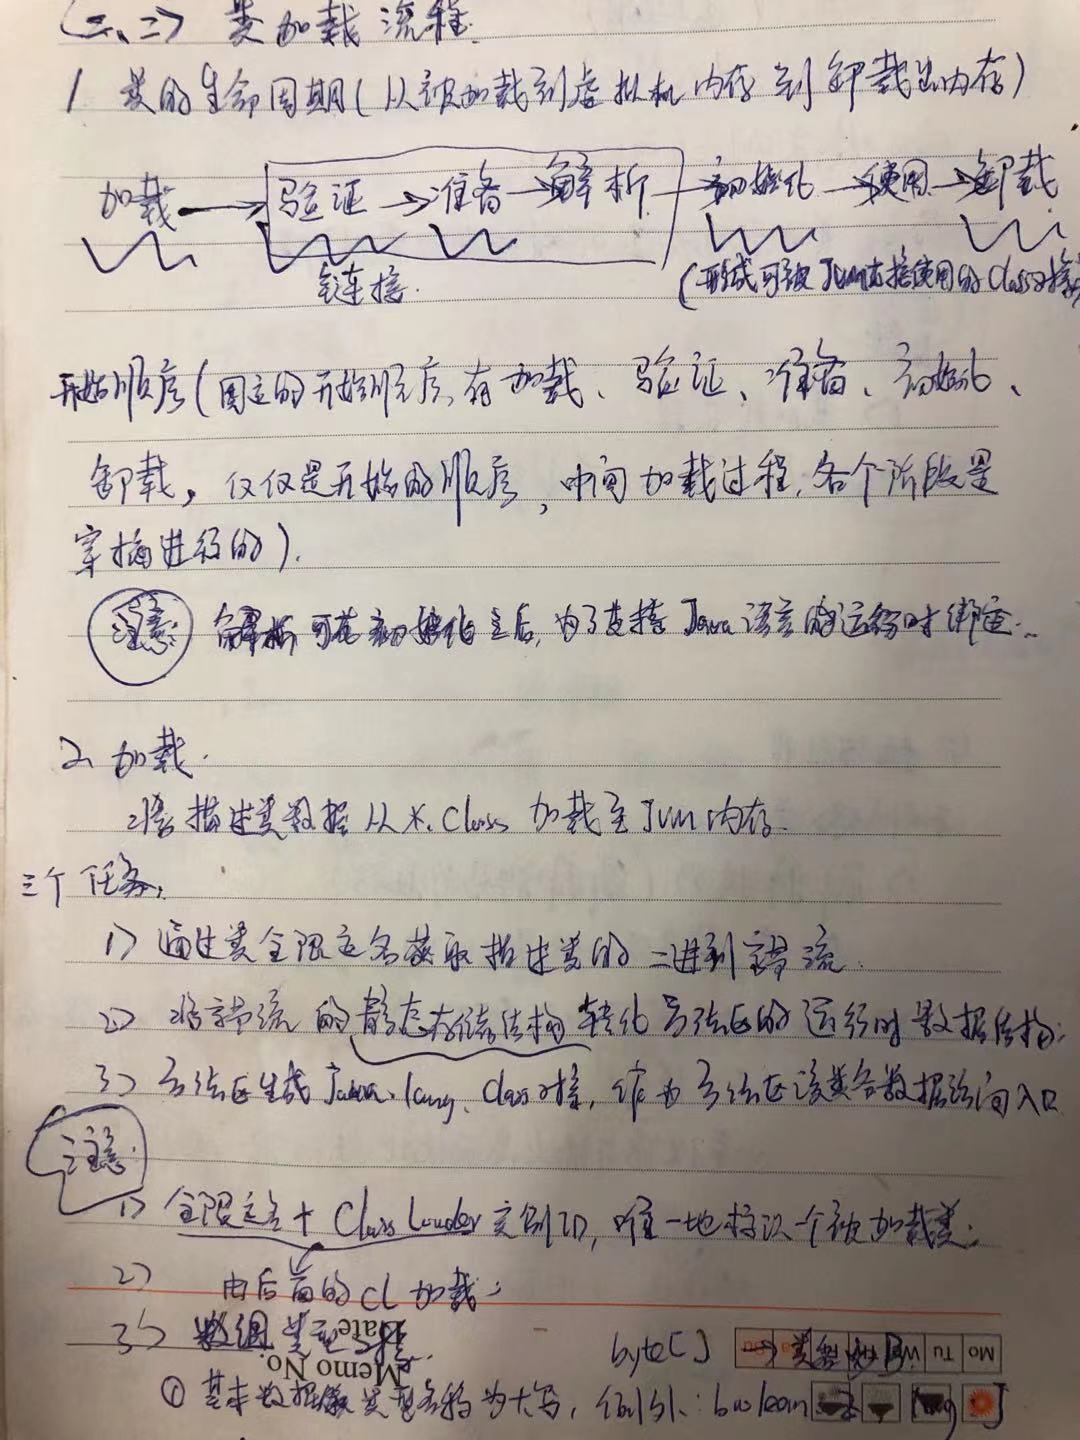 (二、二) 类加载流程.
1 类的生命周期(从被加载到虚拟机内存到卸载出内存)
加载 → 验证 → 准备 → 解析 → 初始化 → 使用 → 卸载
链接.
(形成可被JVM直接使用的Class对象)
开始顺序(固定的开始顺序,有加载、验证、准备、初始化、
卸载,仅仅是开始的顺序,中间加载过程,各个阶段是
穿插进行的).
注意: 解析可在初始化之后,为了支持Java语言的运行时绑定.
2、加载.
将描述类数据从*.Class加载至JVM内存.
三个任务,
1) 通过类全限定名获取描述类的二进制字节流.
2) 将字节流的静态存储结构转化方法区的运行时数据结构;
3) 方法区生成Java.lang.Class对象,作为方法区该类各数据访问入口
注意.
1) 全限定名+ClassLoader实例ID,唯一地标识一个被加载类;
2) 由后面的CL加载;
3) 数组类型 byte[] → 类型为B
Memo No.
Date
Mo Tu W
① 基本数据类型名称为大写,例外: boolean Z long J